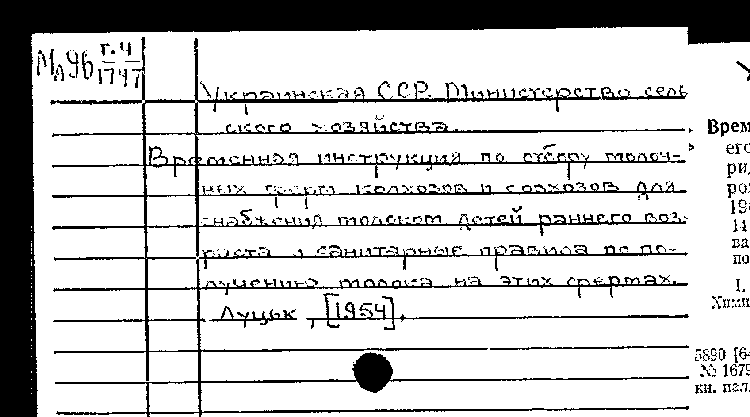 Мл96 г.4/1747
Украинская ССР. Министерство сель-
ского хозяйства.
Временная инструкция по отбору молоч-
ных ферм колхозов и совхозов для
снабжения молоком детей раннего воз-
раста и санитарные правила по по-
лучению молока на этих фермах.
Луцьк, [1954].
Врем
его
рид
роз
198
14
ва
по
I.
Хими
5890 [6-
№ 1679
кн. пал